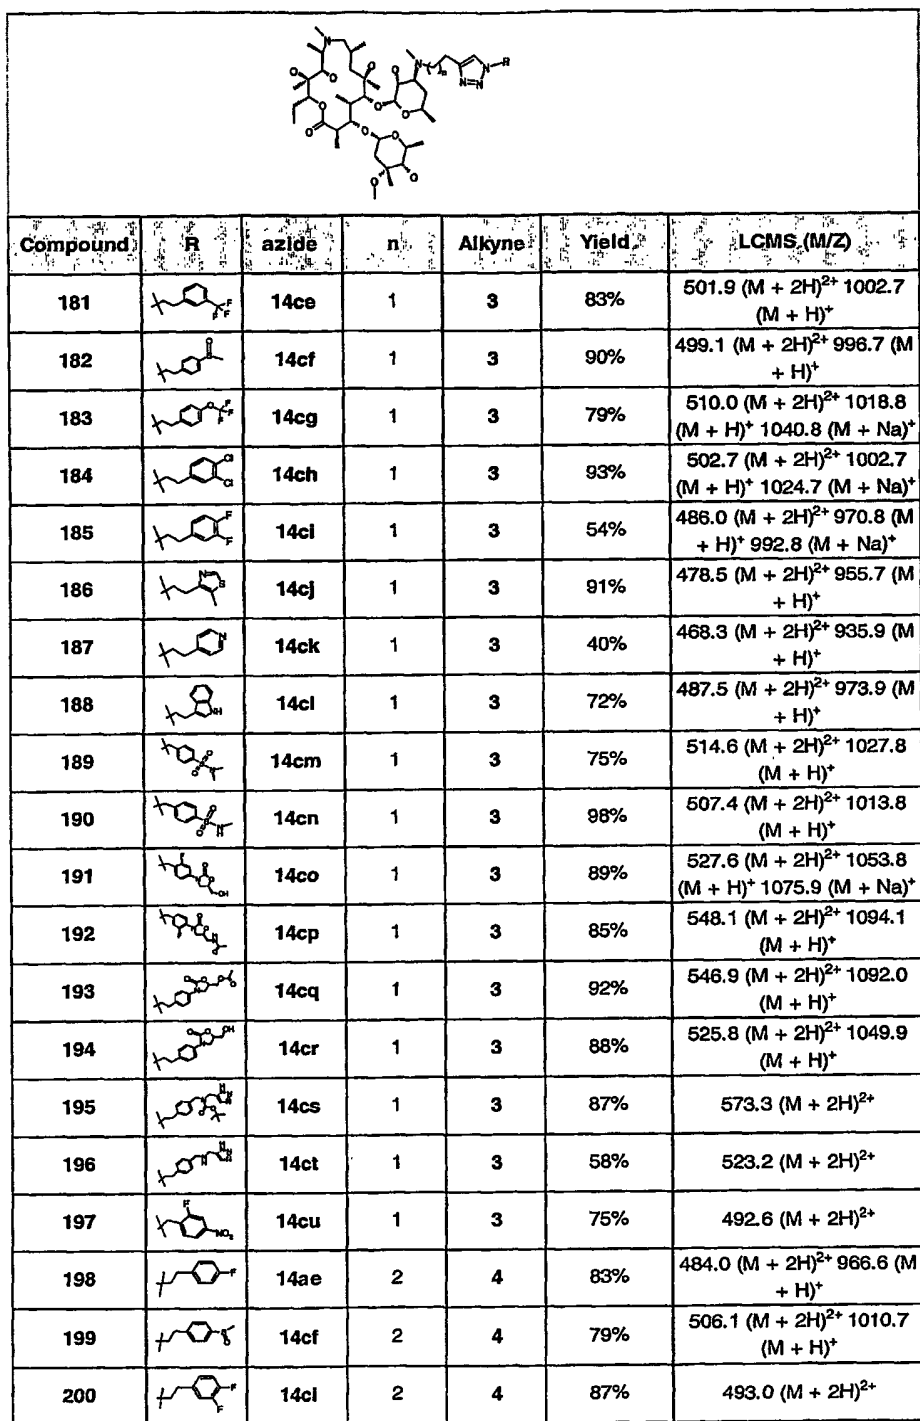 Compound R azide n Alkyne Yield LCMS (M/Z)
181 14ce 1 3 83% 501.9 (M + 2H)²⁺ 1002.7
(M + H)⁺
182 14cf 1 3 90% 499.1 (M + 2H)²⁺ 996.7 (M
+ H)⁺
183 14cg 1 3 79% 510.0 (M + 2H)²⁺ 1018.8
(M + H)⁺ 1040.8 (M + Na)⁺
184 14ch 1 3 93% 502.7 (M + 2H)²⁺ 1002.7
(M + H)⁺ 1024.7 (M + Na)⁺
185 14ci 1 3 54% 486.0 (M + 2H)²⁺ 970.8 (M
+ H)⁺ 992.8 (M + Na)⁺
186 14cj 1 3 91% 478.5 (M + 2H)²⁺ 955.7 (M
+ H)⁺
187 14ck 1 3 40% 468.3 (M + 2H)²⁺ 935.9 (M
+ H)⁺
188 14cl 1 3 72% 487.5 (M + 2H)²⁺ 973.9 (M
+ H)⁺
189 14cm 1 3 75% 514.6 (M + 2H)²⁺ 1027.8
(M + H)⁺
190 14cn 1 3 98% 507.4 (M + 2H)²⁺ 1013.8
(M + H)⁺
191 14co 1 3 89% 527.6 (M + 2H)²⁺ 1053.8
(M + H)⁺ 1075.9 (M + Na)⁺
192 14cp 1 3 85% 548.1 (M + 2H)²⁺ 1094.1
(M + H)⁺
193 14cq 1 3 92% 546.9 (M + 2H)²⁺ 1092.0
(M + H)⁺
194 14cr 1 3 88% 525.8 (M + 2H)²⁺ 1049.9
(M + H)⁺
195 14cs 1 3 87% 573.3 (M + 2H)²⁺
196 14ct 1 3 58% 523.2 (M + 2H)²⁺
197 14cu 1 3 75% 492.6 (M + 2H)²⁺
198 14ae 2 4 83% 484.0 (M + 2H)²⁺ 966.6 (M
+ H)⁺
199 14cf 2 4 79% 506.1 (M + 2H)²⁺ 1010.7
(M + H)⁺
200 14ci 2 4 87% 493.0 (M + 2H)²⁺